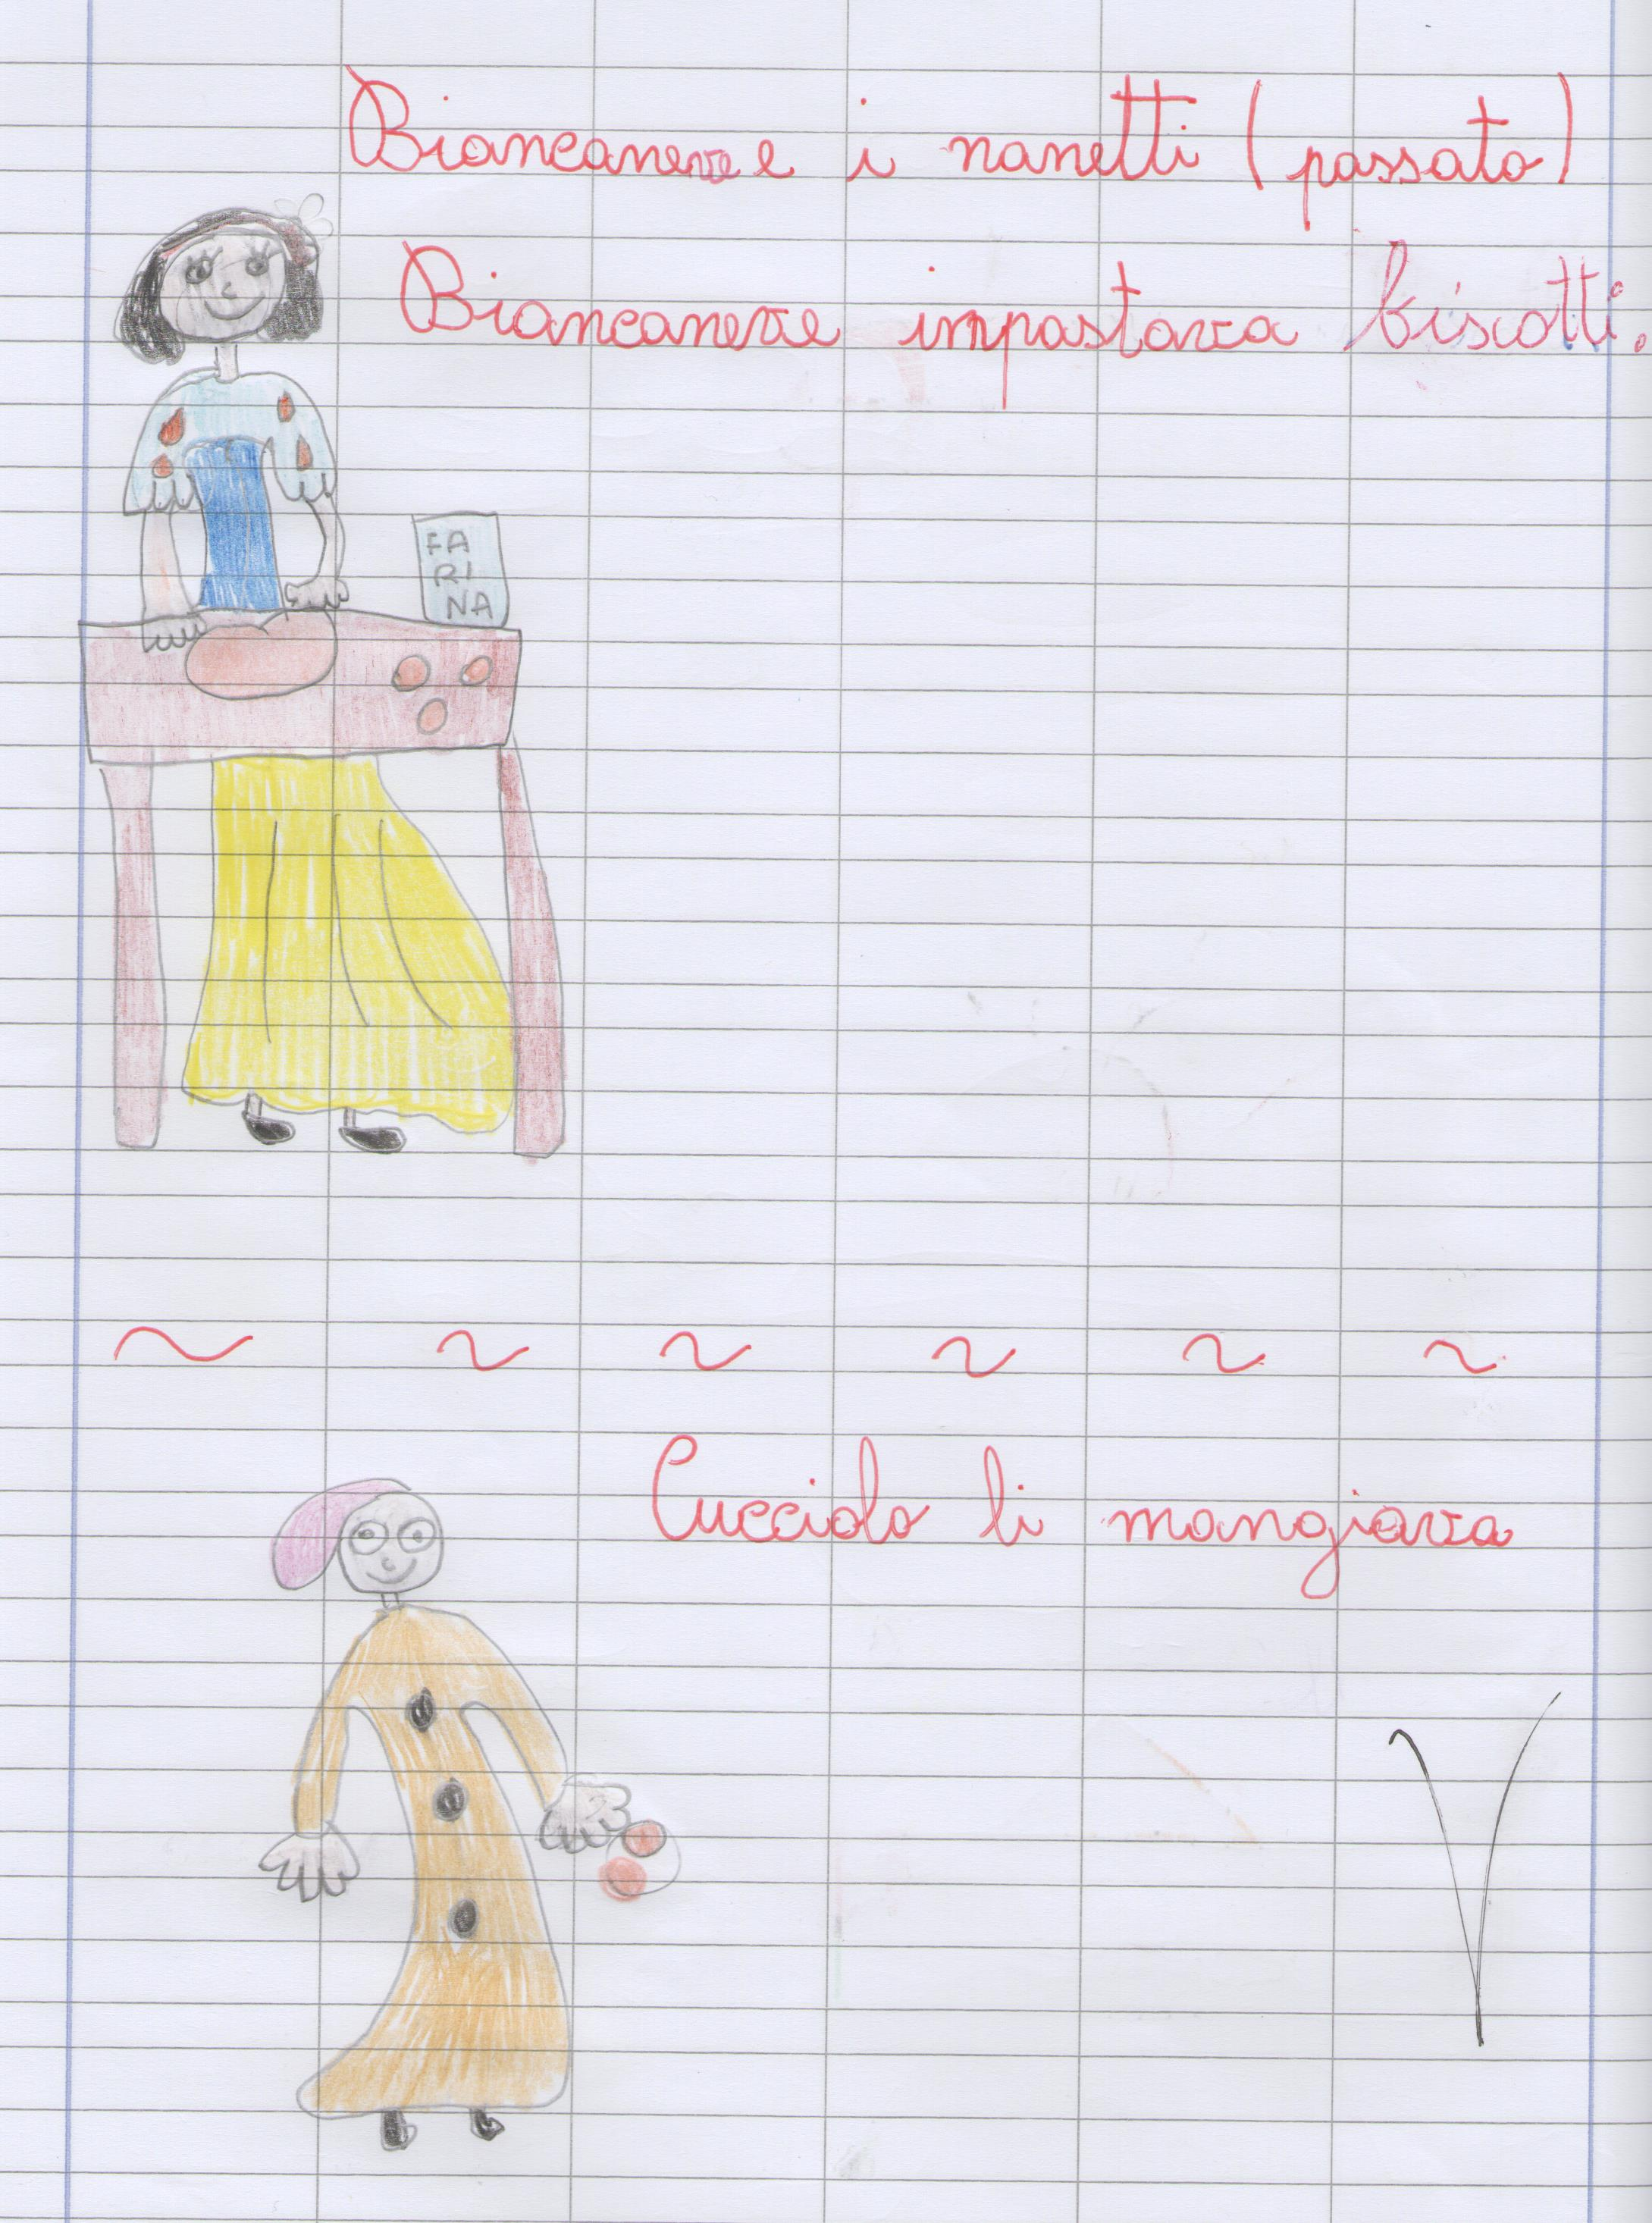 Biancaneve e i nanetti (passato)
Biancaneve impastava biscotti.
FA
RI
NA
Cucciolo li mangiava